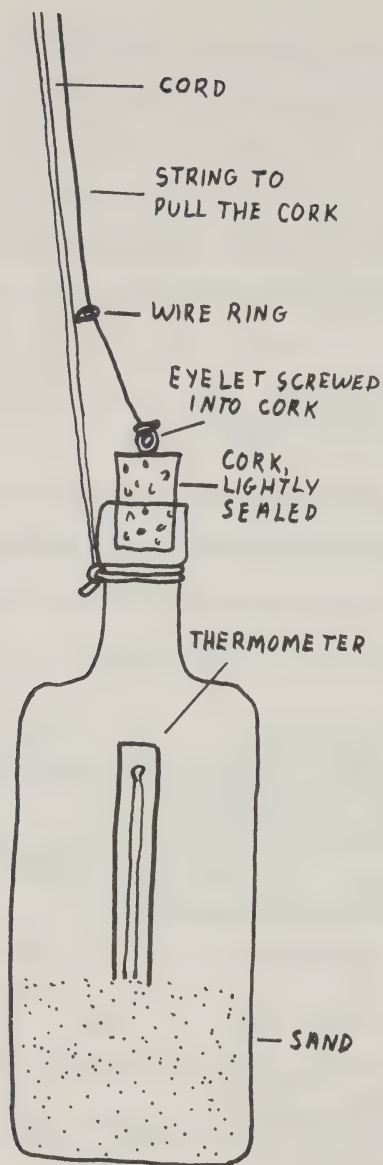 CORD
STRING TO
PULL THE CORK
WIRE RING
EYELET SCREWED
INTO CORK
CORK,
LIGHTLY
SEALED
THERMOMETER
SAND